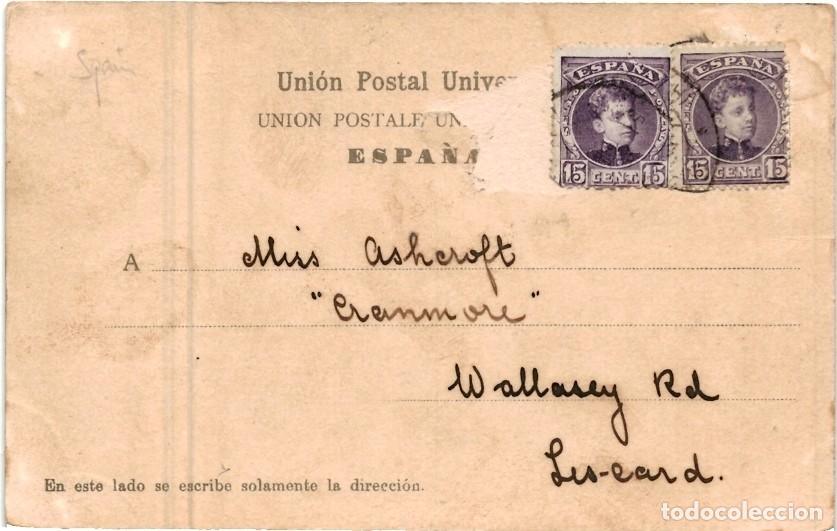 Spain
Unión Postal Univer
UNION POSTALE UN
ESPAÑA
ESPAÑA
15 CENT. 15
ESPAÑA
15 CENT. 15
A Miss Ashcroft
"Cranmore"
Wallasey Rd
Lis-card.
En este lado se escribe solamente la dirección.
todocoleccion